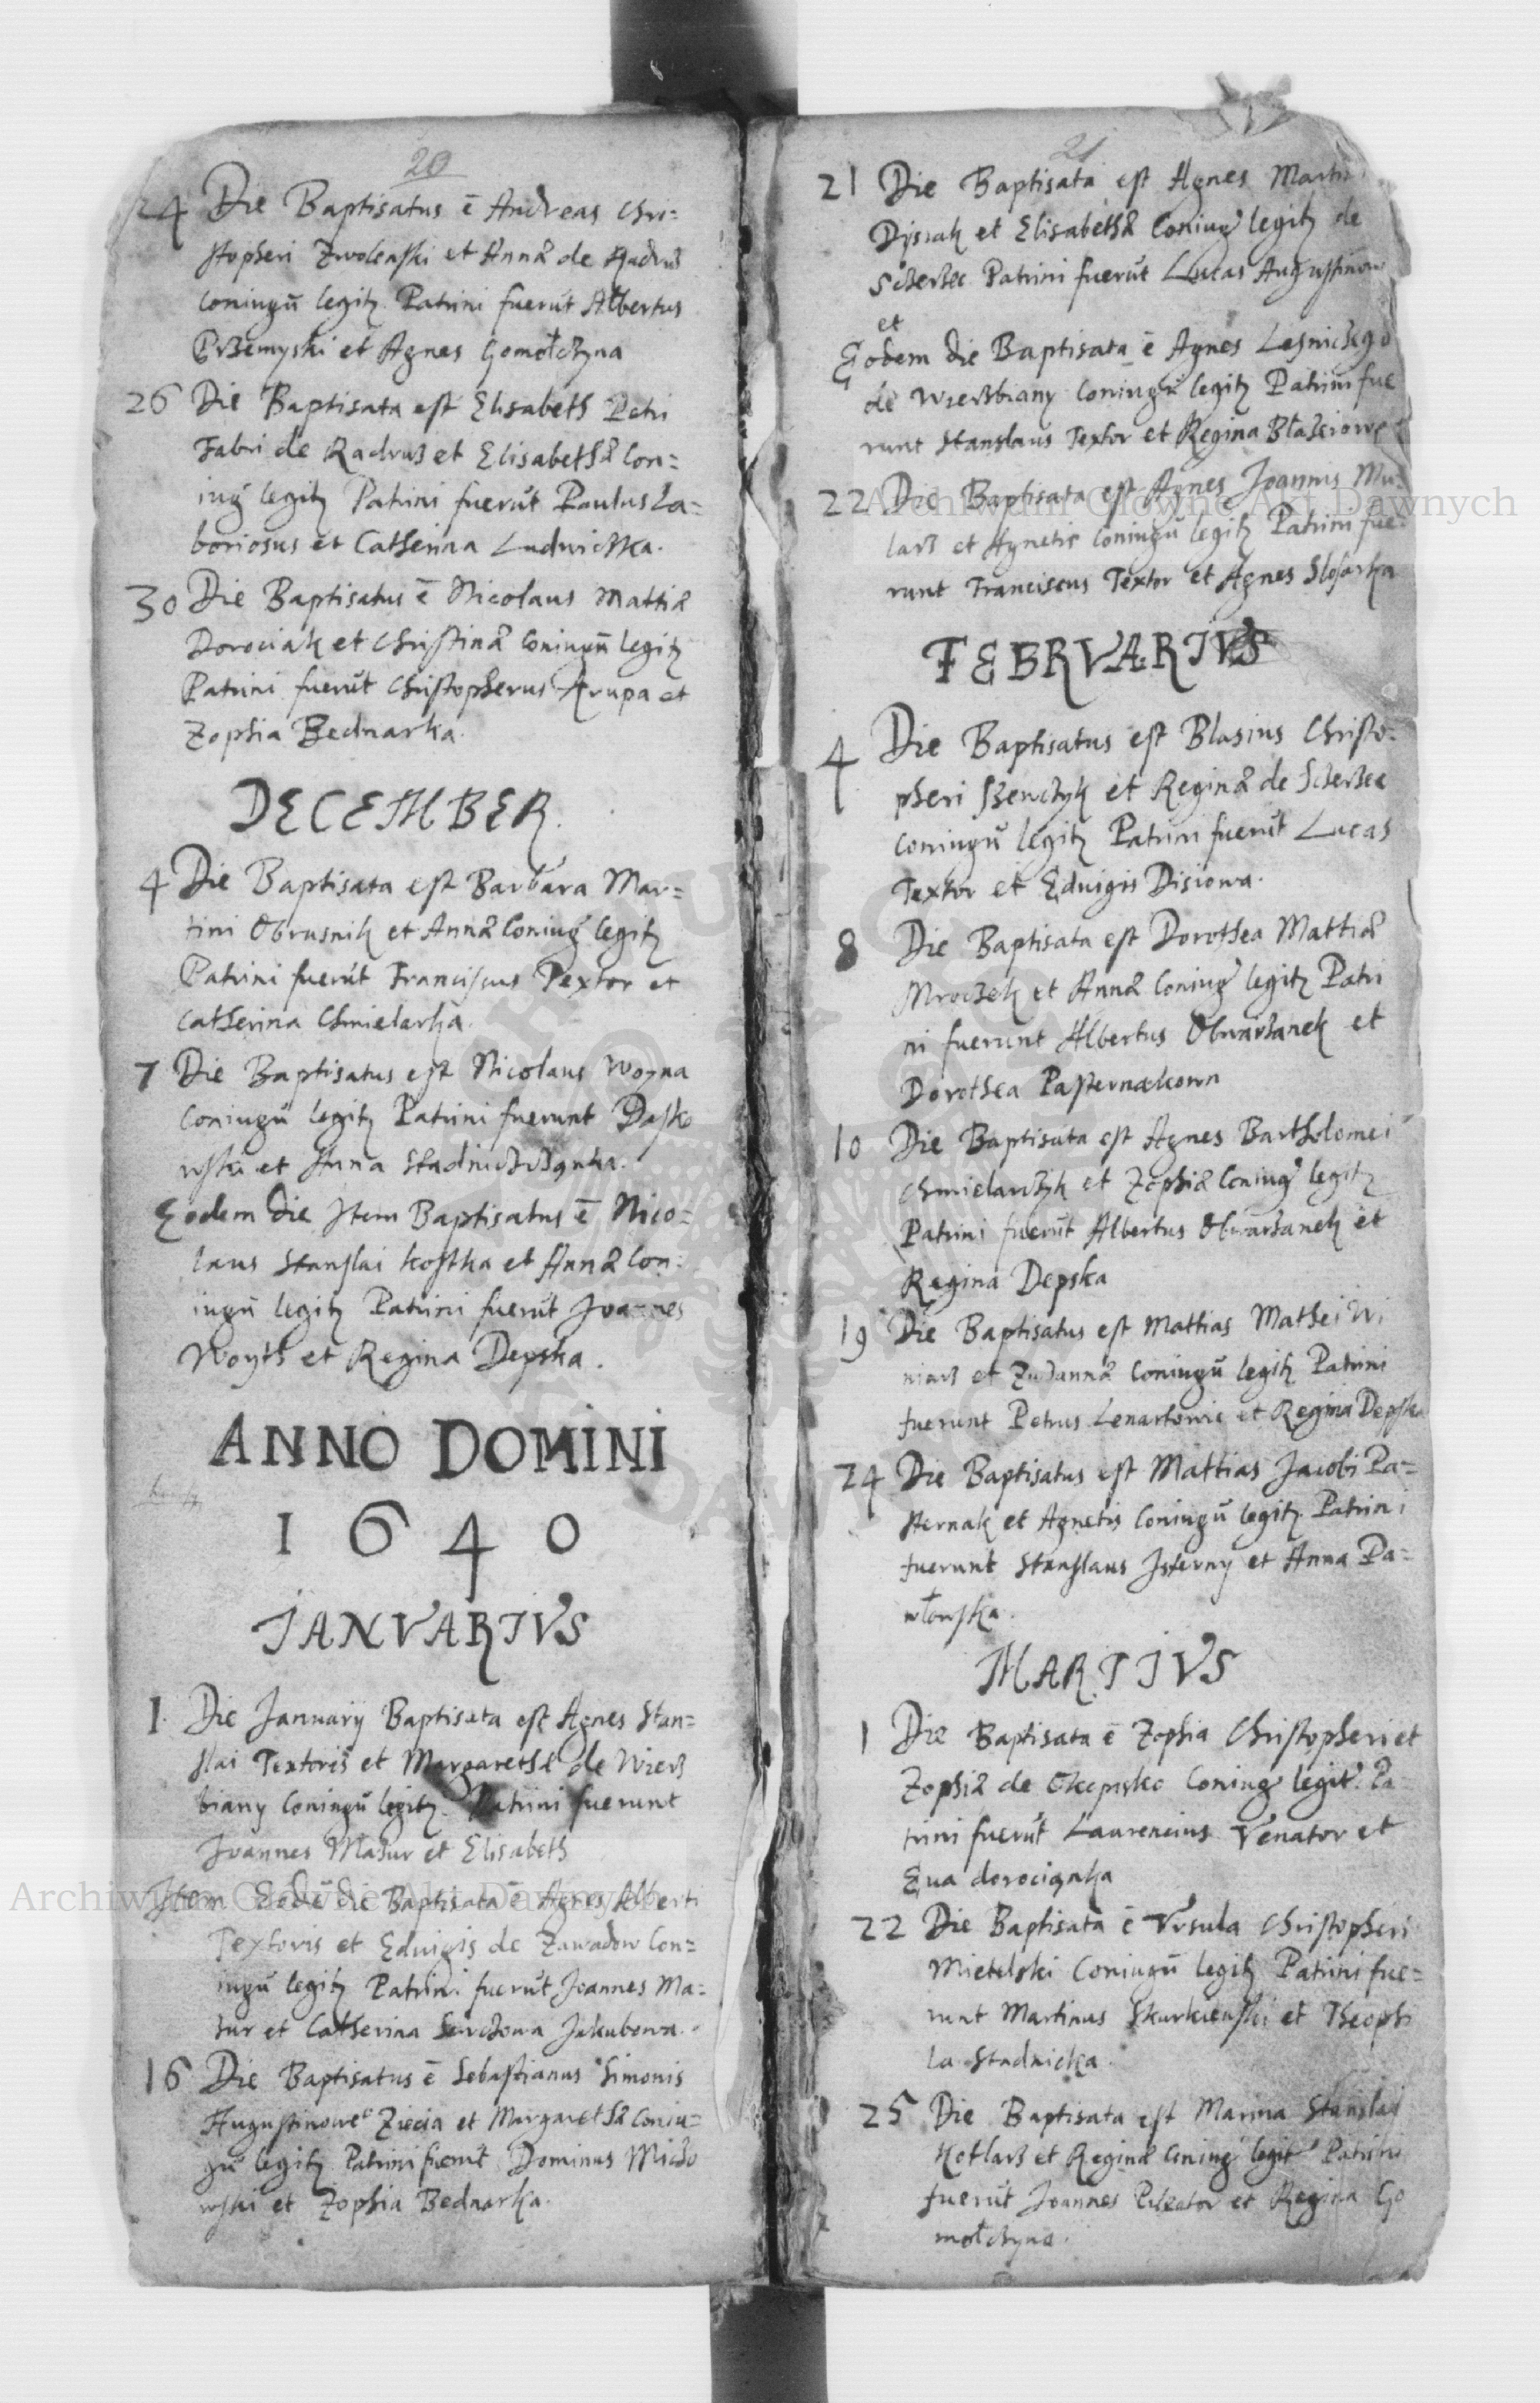 20
24 Die Baptisatus ē Andreas Chri=
stopheri Zwolenski et Annæ de Radruß
Coniugū legitʒ Patrini fuerūt Albertus
Przemyski et Agnes Gomołczyna
26 Die Baptisata est Elisabeth Petri
Fabri de Radruß et Elisabethæ Con=
iug legitʒ Patrini fuerūt Paulus La=
boriosus et Catherina Ludwiczka.
30 Die Baptisatus ē Nicolaus Mattiæ
Dorociak et Christinæ Coniugū legitʒ
Patrini fuerūt Christopherus Krupa et
Zophia Bednarka.
DECEMBER.
4 Die Baptisata est Barbara Mar=
tini Obrusnik et Annæ Coniug legitʒ
Patrini fuerūt Franciscus Textor et
Catherina Chmielarka.
7 Die Baptisatus est Nicolaus Woyna
Coniugū legitʒ Patrini fuerunt Dasko
wski et Anna
Eodem die Item Baptisatus ē Nico=
laus Stanslai Kostka et Annæ Con=
iugū legitʒ Patrini fuerūt Joannes
Woyth et Regina Depska.
ANNO DOMINI
1640
JANVARIVS
1. Die Januarij Baptisata est Agnes Stan=
slai Textoris et Margarethæ de Wierz
biany Coniugū legitʒ. Patrini fuerunt
Joannes Mazur et Elisabeth
Item Eodē die Baptisata ē Agnes Alberti
Textoris et Eduigis de Zawadow Con=
iugū legitʒ Patrini fuerūt Joannes Ma=
zur et Catherina Jakubowa.
16 Die Baptisatus ē Sebastianus Simonis
Augustinowe Ziecia et Margarethæ Coniu=
gū legitʒ Patrini fuerūt Dominus Micho
wski et Zophia Bednarka.
21
21 Die Baptisata est Agnes Martini
Dysiak et Elisabethæ Coniug legitʒ de
Sczerzec Patrini fuerūt Lucas Augustinow
et
Eodem die Baptisata ē Agnes Lesniczego
de Wierzbiany Coniugū legitʒ Patrini fue
runt Stanslaus Textor et Regina Błażeiowa
22 Die Baptisata est Agnes Joannis Mu=
larz et Agnetis Coniugū legitʒ Patrini fue=
runt Franciscus Textor et Agnes Slosarka
FEBRVARIVS
4 Die Baptisatus est Blasius Christo=
pheri Szewczyk et Reginæ de Sczerzec
Coniugū legitʒ Patrini fuerūt Lucas
Textor et Eduigis Disiowa.
8 Die Baptisata est Dorothea Mattiæ
Mroczek et Annæ Coniug legitʒ Patri
ni fuerunt Albertus Obwarzanek et
Dorothea Pasternakowa
10 Die Baptisata est Agnes Bartholomei
Chmielarczyk et Zophiæ Coniug legitʒ
Patrini fuerūt Albertus Obwarzanek et
Regina Depska
19 Die Baptisatus est Mattias Mathei Wi
niarz et Zuzannæ Coniugū legitʒ Patrini
fuerunt Petrus Lenartowic et Regina Depska
24 Die Baptisatus est Mattias Jacobi Pa=
sternak et Agnetis Coniugū legitʒ Patrini
fuerunt Stanslaus et Anna Pa=
włowska.
MARTIVS
1 Die Baptisata ē Zophia Christopheri et
Zophiæ de Coniug legit. Pa
trini fuerūt Laurencius Venator et
Eua dorociąka
22 Die Baptisata ē Vrsula Christopheri
Mietelski Coniugū legitʒ Patrini fue=
runt Martinus Skurkienski et Theophi
la Stadnicka.
25 Die Baptisata est Marina Stanislai
Kotlarz et Reginæ Coniug legit Patrini
fuerūt Joannes Piscator et Regina Go
mołczyna.
Archiwum Główne Akt Dawnych
Archiwum Główne Akt Dawnych